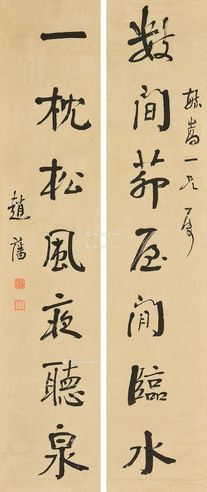 數間茆屋閒臨水
一枕松風夜聽泉
趙藩